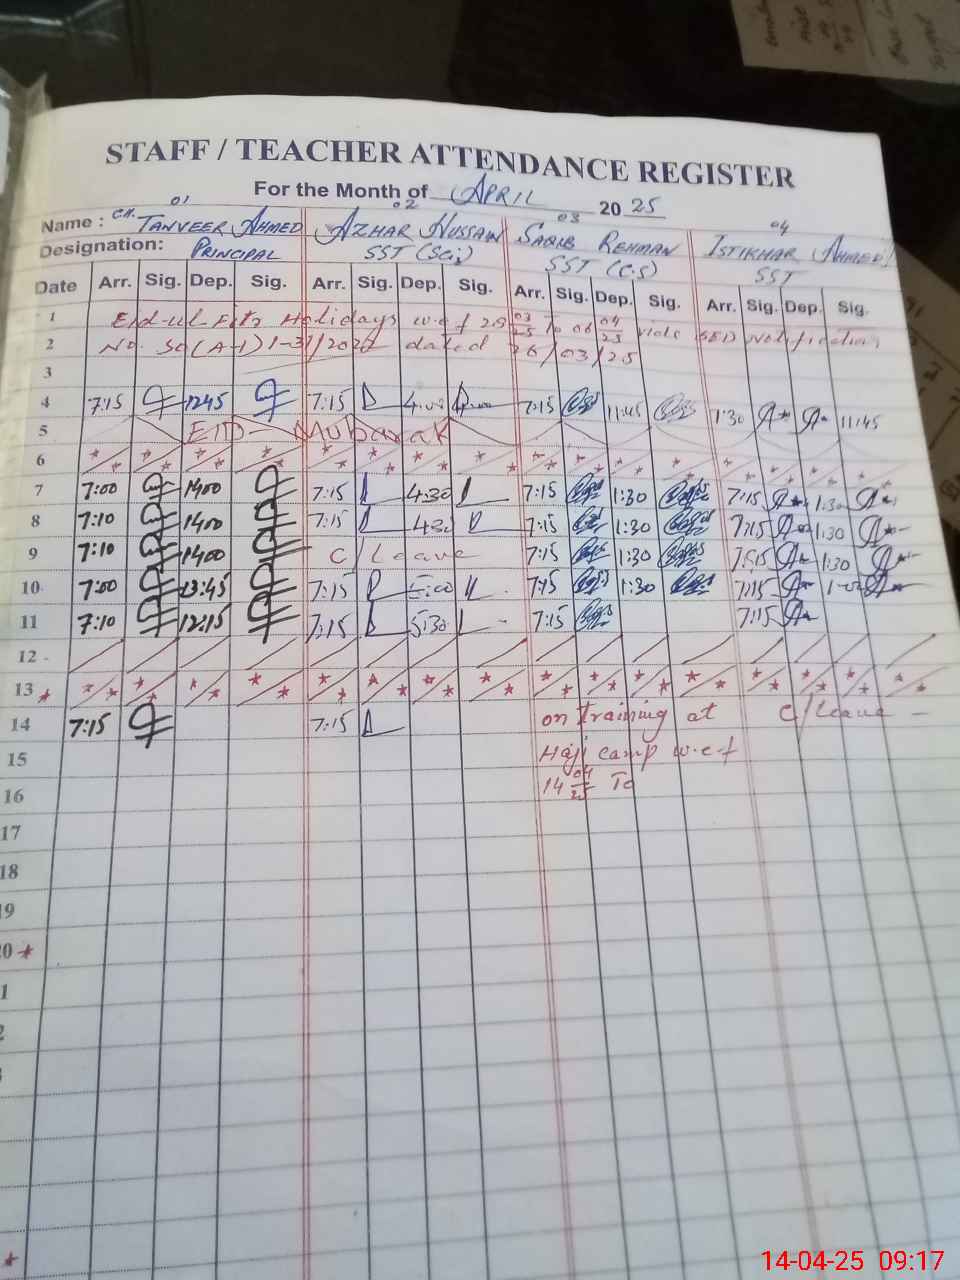 STAFF / TEACHER ATTENDANCE REGISTER
For the Month of APRIL 2025
01 02 03 04
Name : CH. TANVEER AHMED AZHAR HUSSAIN SAQIB REHMAN ISTIKHAR AHMED
Designation: PRINCIPAL SST (Sci) SST (C.S) SST
Date Arr. Sig. Dep. Sig. Arr. Sig. Dep. Sig. Arr. Sig. Dep. Sig. Arr. Sig. Dep. Sig.
1 Eid-ul-Fitr Holidays w.e.f 29 03/25 To 06 04/25 vide SED Notification
2 No. SO(A-I) 1-31/ dated 26/03/25
3
4 7:15 1245 7:15 4:00 7:15 11:45 7:30 11:45
5 EID-Mubarak
6
7 7:00 1400 7:15 4:30 7:15 1:30 7:15 1:30
8 7:10 1400 7:15 4:30 7:15 1:30 7:15 1:30
9 7:10 1400 C/Leave 7:15 1:30 7:15 1:30
10 7:00 13:45 7:15 5:00 7:15 1:30 7:15
11 7:10 12:15 7:15 5:30 7:15 7:15
12
13
14 7:15 7:15 on training at C/Leave
15 Haji camp w.e.f
16 14 04/25 To
17
18
19
20
1
2
14-04-25 09:17